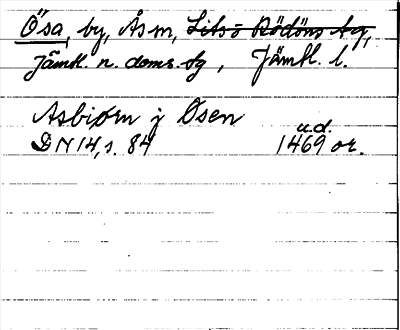 Ösa, by, Ås sn, Lits o Rödöns tg,
Jämtl. n. doms. tg, Jämtl. l.
Asbiørn j Øsen
u.d.
DN 14, s. 84 1469 or.